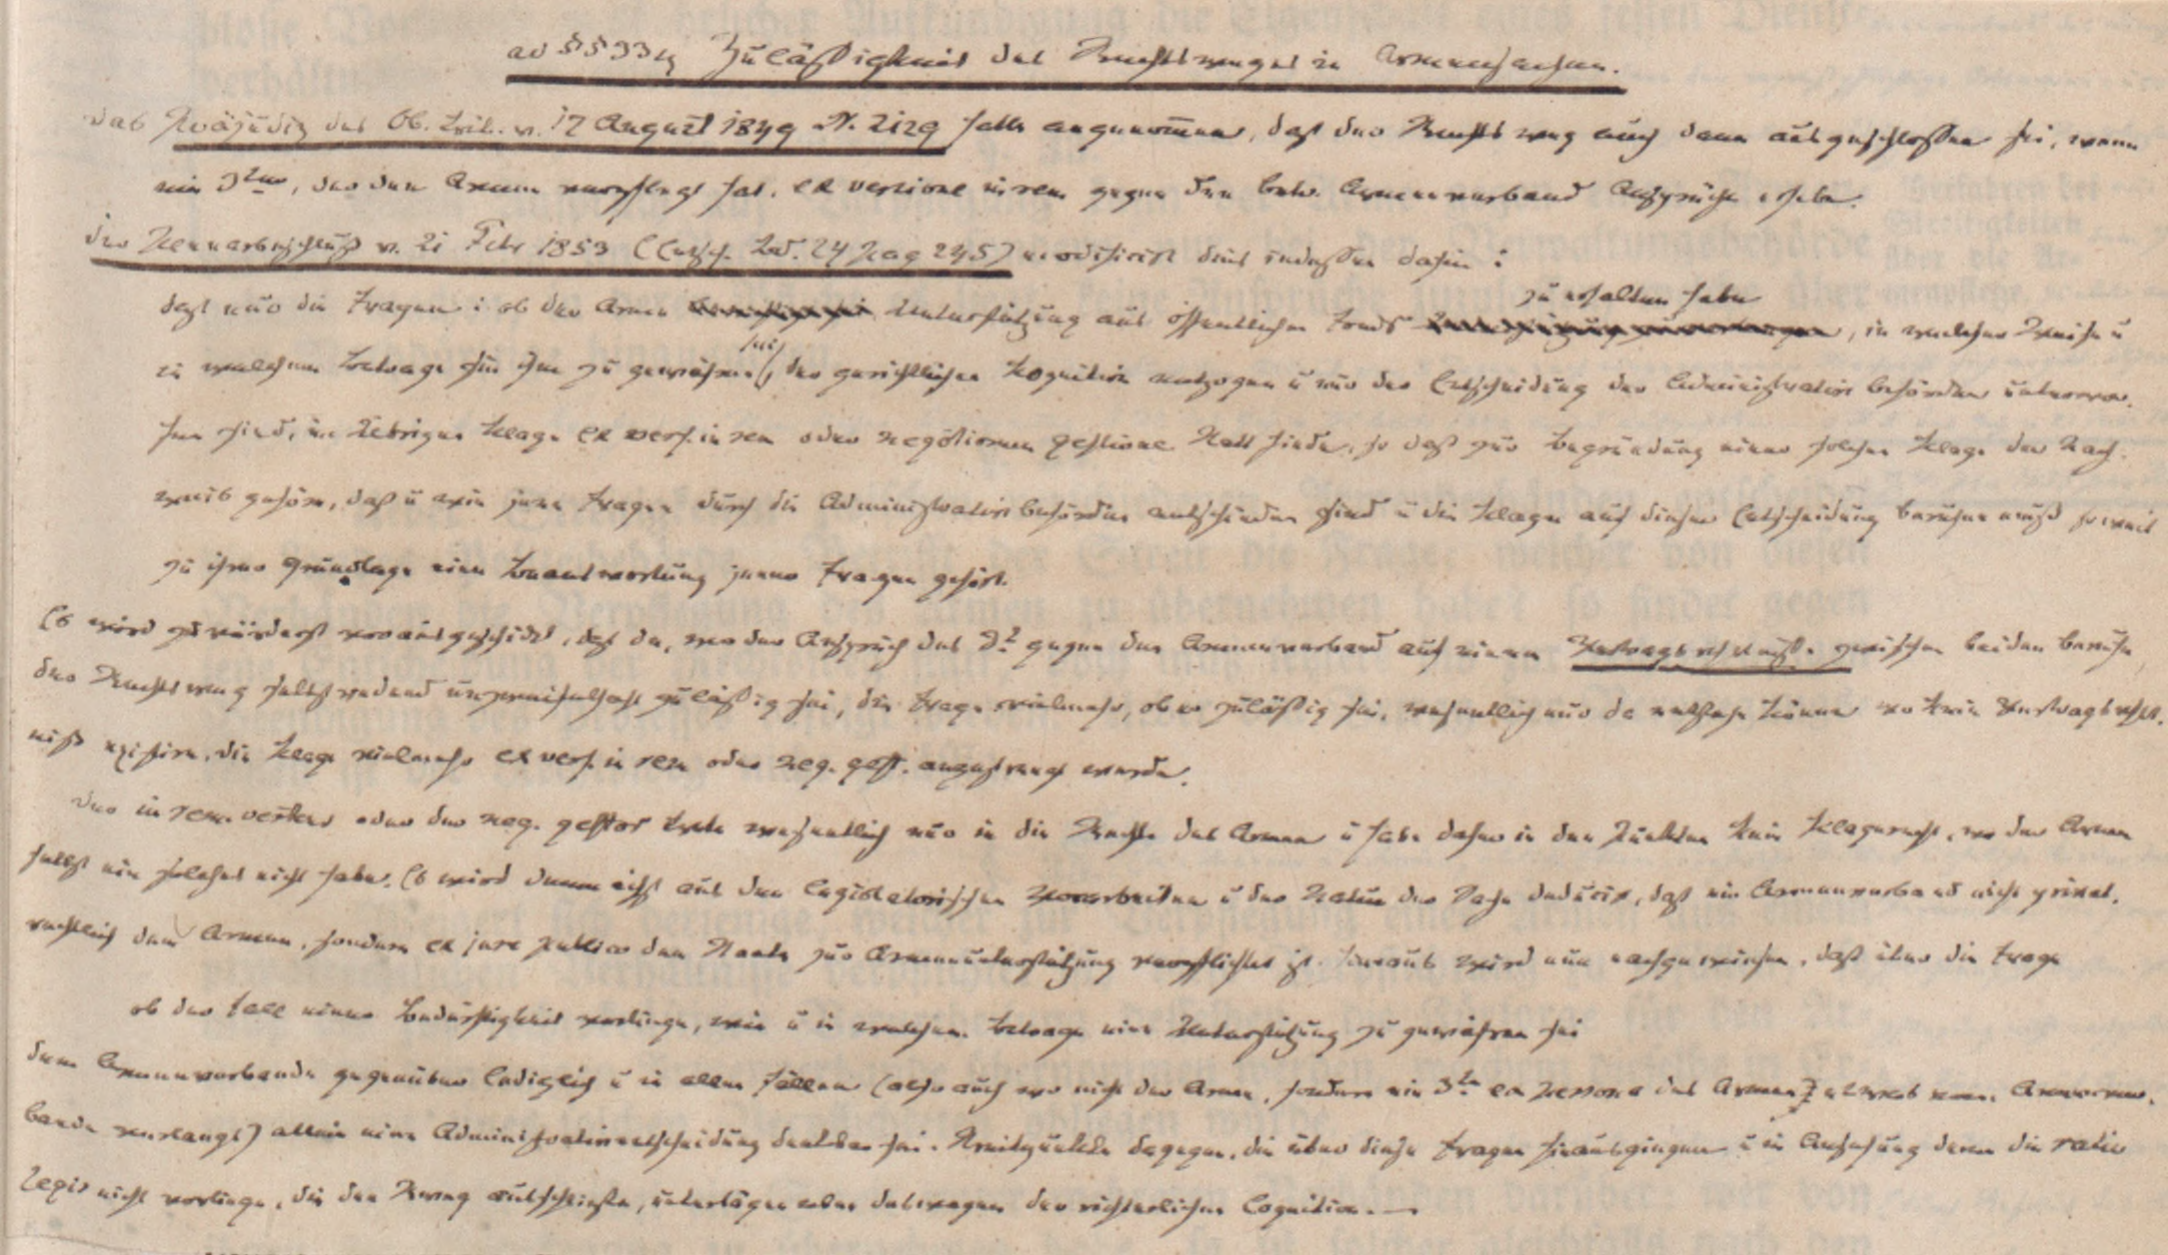 ad §§ 33 Zulässigkeit des Rechtsweges in Armensachen.
das Präjudiz des Ob. Trib. v. 17 August 1849 N. 2129 hatte angenommen, daß der Rechtsweg auch dann ausgeschlossen sei, wenn
ein 3ter, der den Armen verpflegt hat, ex versione in rem gegen den betr. Armenverband Ansprüche erhebe.
der Plenarbeschluß v. 21 Febr 1853 (Entsch. Bd. 24 Pag 245) modificirt dies indessen dahin:
daß nur die Fragen: ob der Arme Unterstützung aus öffentlichen Fonds zu erhalten habe, in welcher Weise u
zu welchem Betrage sie ihm zu gewähren sei, der gerichtlichen Kognition entzogen u nur der Entscheidung der Administrativbehörden unterwor-
fen sind, im Uebrigen Klage ex vers. in rem oder negotiorum gestione statt finde, so daß zur Begründung einer solchen Klage der Nach-
weis gehöre, daß u wie jene Fragen durch die Administrativbehörden entschieden sind u die Klage auf dieser Entscheidung beruhen muß soweit
zu ihrer Grundlage eine Beantwortung jener Fragen gehört.
Es wird zuvörderst vorausgeschickt, daß da, wo der Anspruch des 3t gegen den Armenverband auf einem Vertragsverhältnisse zwischen beiden beruhe
der Rechtsweg selbstredend unzweifelhaft zulässig sei, die Frage vielmehr, ob er zulässig sei, wesentlich nur da entstehen könne wo kein Vertragsverhält-
niß existire, die Klage vielmehr ex vers. in rem oder neg. gest. angestrengt werde.
der in rem vertens oder der neg. gestor trete wesentlich nur in die Rechte des Armen u habe daher in den Punkten kein Klagerecht, wo der Arme
selbst ein solches nicht habe. Es wird demnächst aus den legislatorischen Vorarbeiten u der Natur der Sache deducirt, daß ein Armenverband nicht privat-
rechtlich dem Armen, sondern ex jure publico dem Staate zur Armenunterstützung verpflichtet ist. Hieraus wird nun nachgewiesen, daß über die Frage
ob der Fall einer Bedürftigkeit vorliege, wie u in welchem Betrage eine Unterstützung zu gewähren sei
dem Armenverbande gegenüber lediglich u in allen Fällen (also auch wo nicht der Arme, sondern ein 3ter ex persona des Armen etwas vom Armenver-
bande verlangt) allein eine Administrativentscheidung denkbar sei. Streitpunkte dagegen, die über diese Fragen hinausgingen u in Ansehung deren die ratio
legis nicht vorliege, die den Rweg ausschließe, unterlägen eben deswegen der richterlichen Cognition.